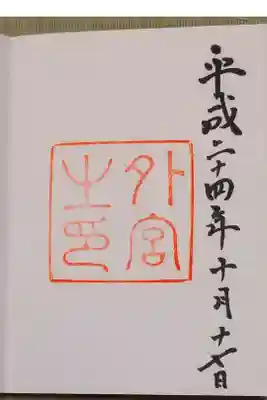 平成二十四年十月十七日
外宮
之印